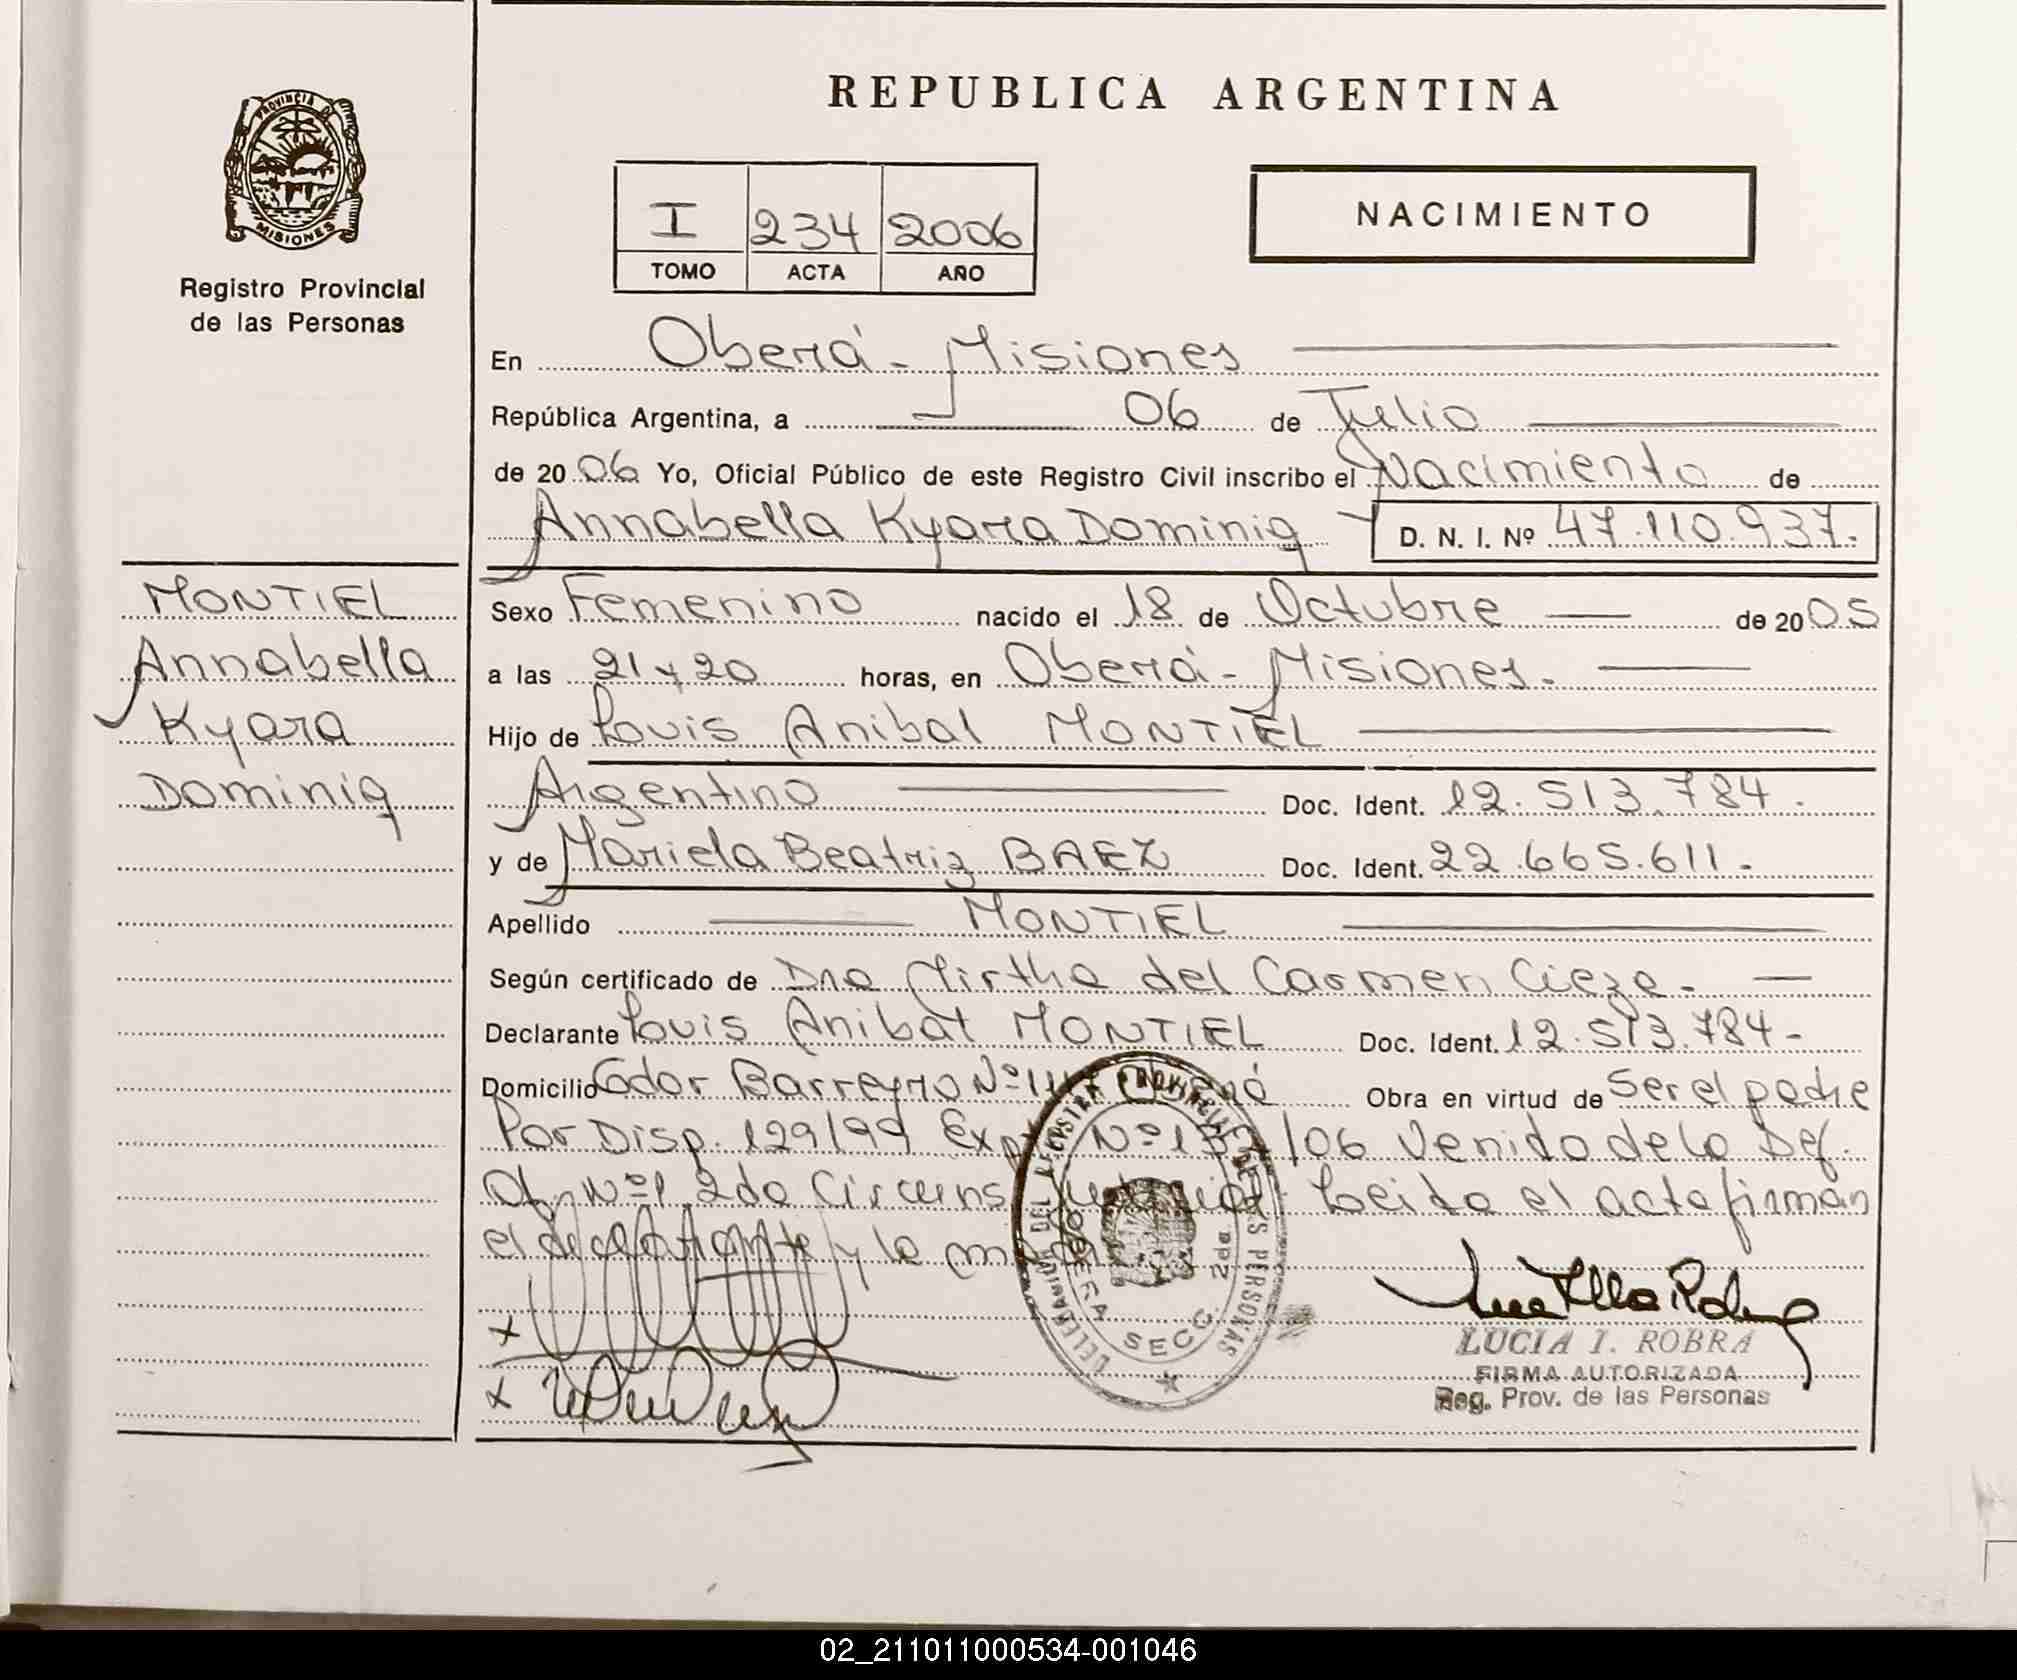 REPUBLICA ARGENTINA
PROVINCIA DE
MISIONES
Registro Provincial
de las Personas
I 234 2006
TOMO ACTA AÑO
NACIMIENTO
En Oberá - Misiones
República Argentina, a 06 de Julio
de 2006 Yo, Oficial Público de este Registro Civil inscribo el Nacimiento de
Annabella Kyara Dominiq D. N. I. Nº 47.110.937.
MONTIEL
Annabella
Kyara
Dominiq
Sexo Femenino nacido el 18 de Octubre de 2005
a las 21 y 20 horas, en Oberá - Misiones.
Hijo de Louis Anibal MONTIEL
Argentino Doc. Ident. 12.513.784.
y de Mariela Beatriz BAEZ Doc. Ident. 22.665.611.
Apellido MONTIEL
Según certificado de Dra Mirtha del Carmen Cieza.
Declarante Louis Anibal MONTIEL Doc. Ident. 12.513.784-
Domicilio Cdor Barreyro Nº Obra en virtud de ser el padre
Por Disp. 129/99 Nº /06 Venido de la Def.
Of. Nº1 2da Circuns Leida el acta firman
el declarante y la
DELEGACION DEL REGISTRO PROVINCIAL DE LAS PERSONAS
OBERA SECC. 2da.
x
x
LUCIA I. ROBRA
FIRMA AUTORIZADA
Reg. Prov. de las Personas
02_211011000534-001046